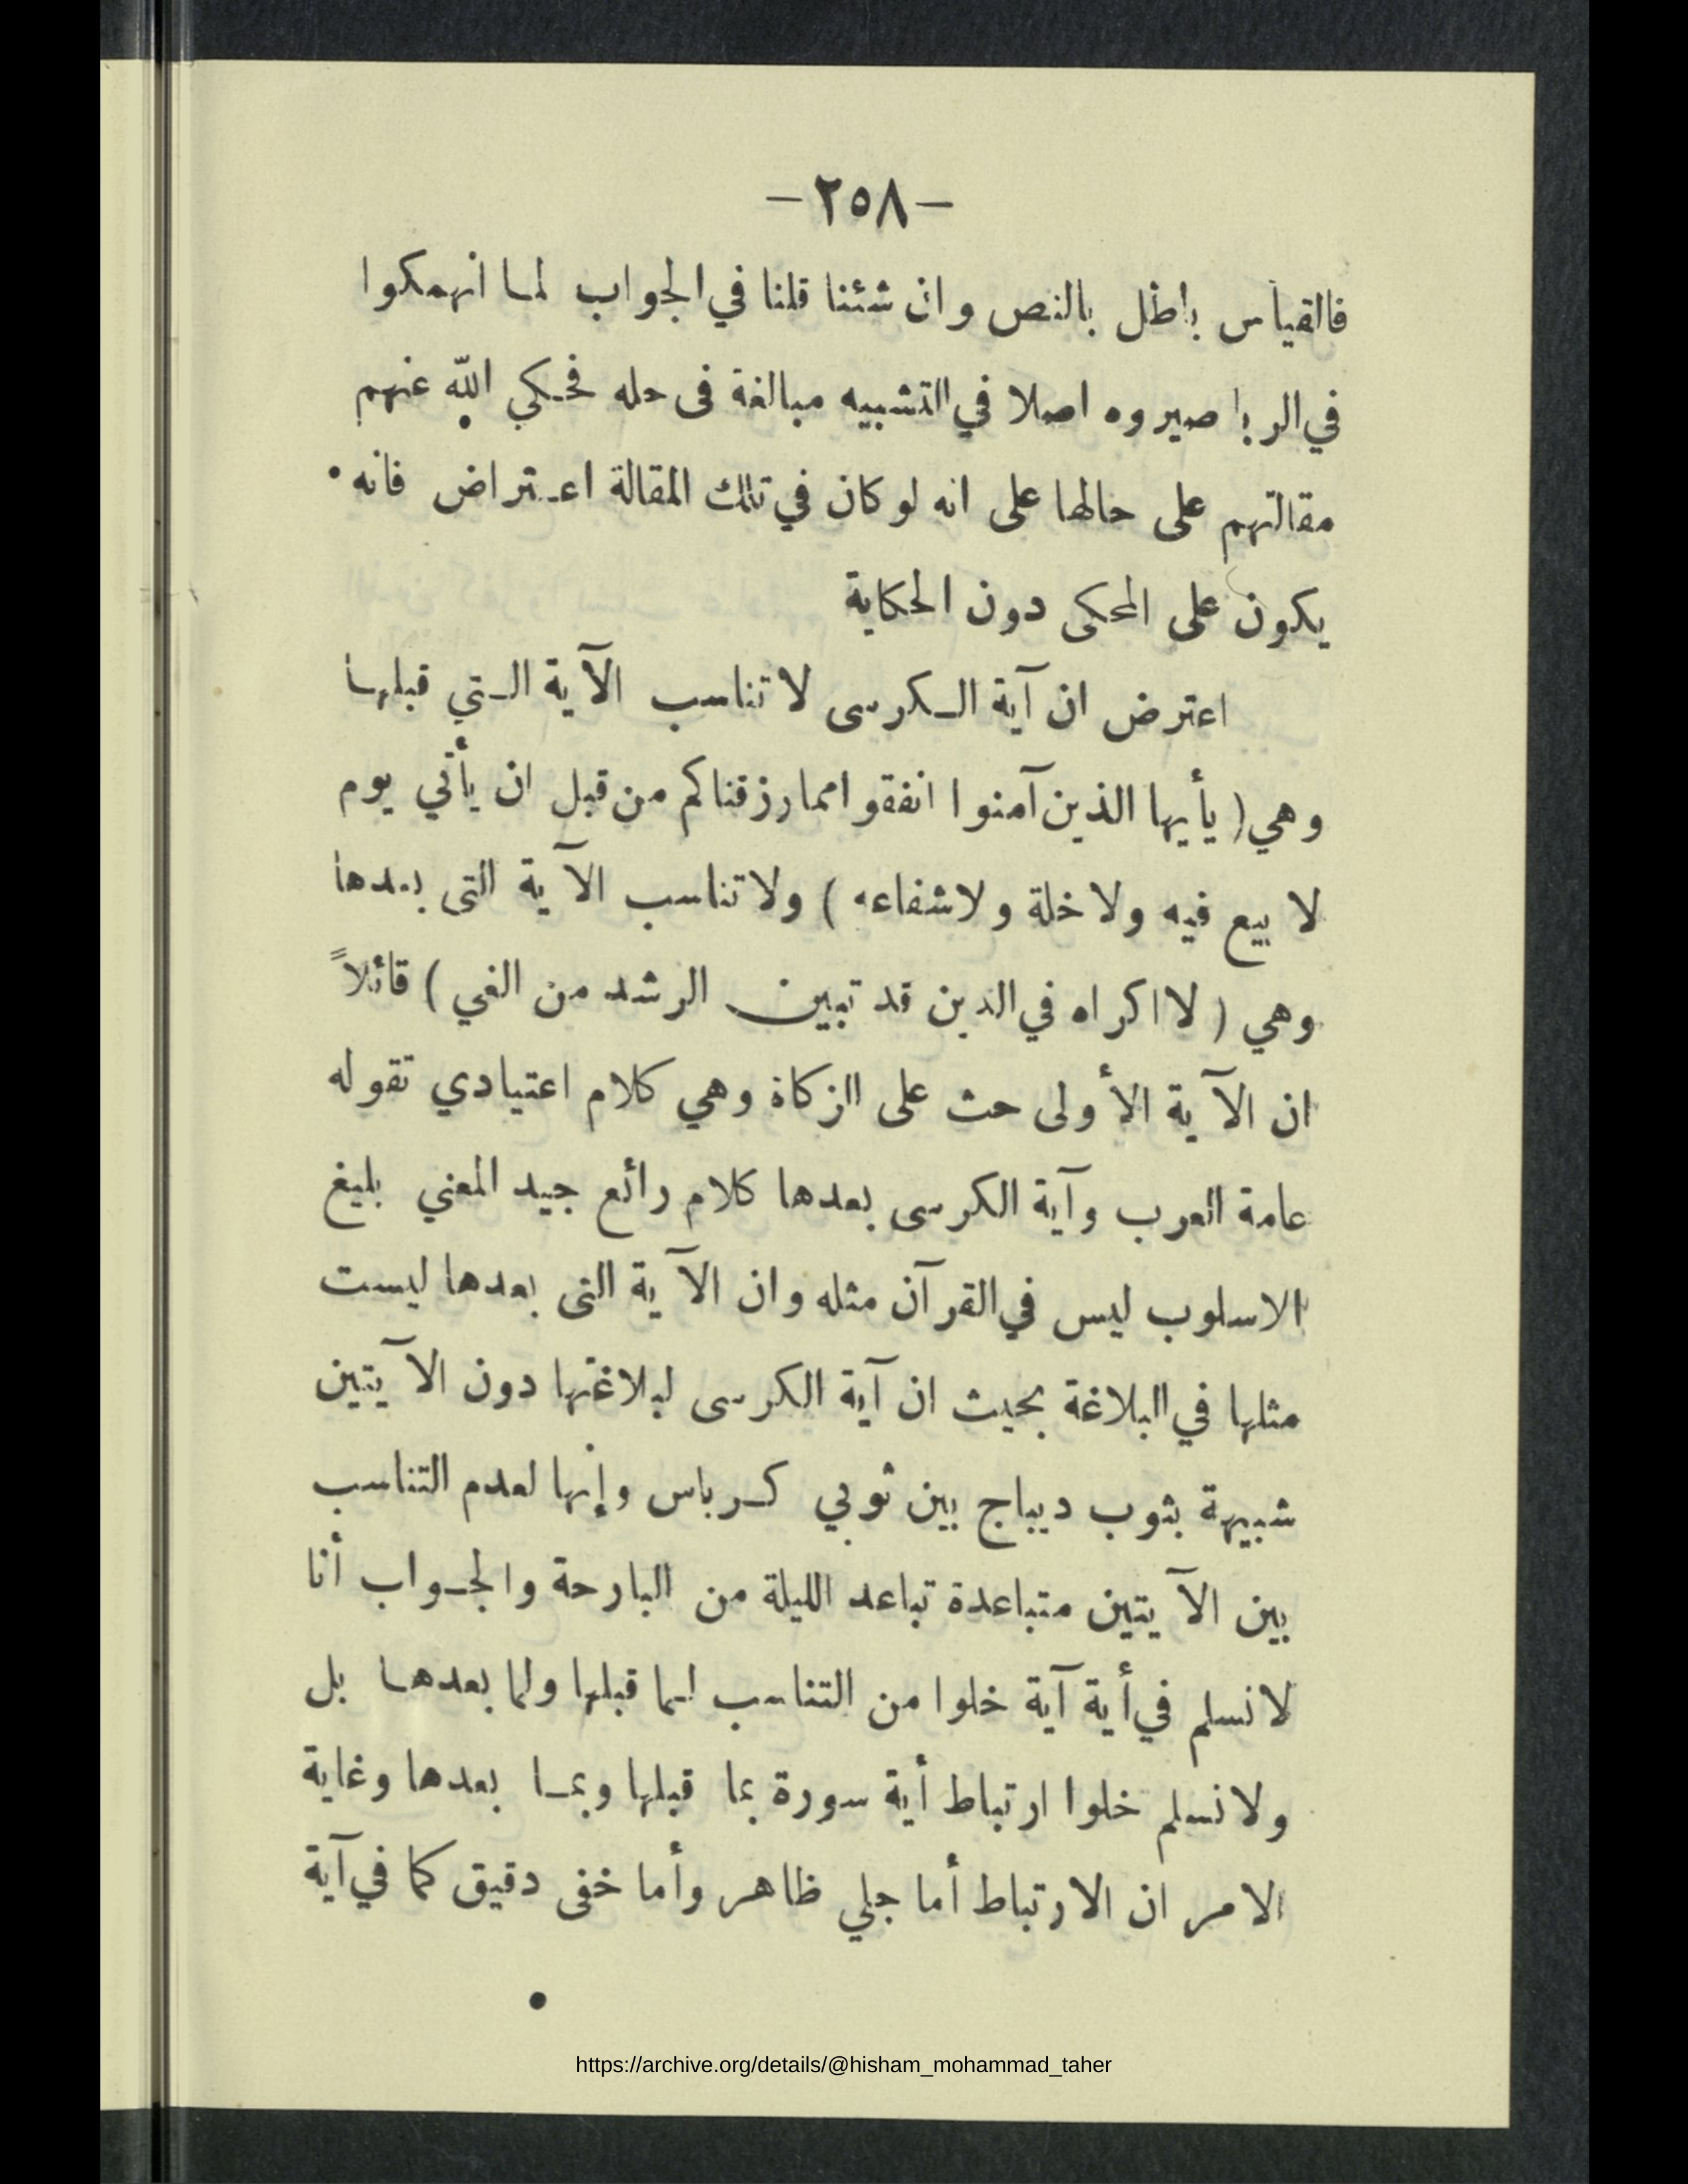 — ٢٥٨ —
فالقياس باطل بالنص وان شئنا قلنا في الجواب لما انهمكوا
في الربا صيروه اصلا في التشبيه مبالغة فى حله فحكي الله عنهم
مقالتهم على حالها على انه لو كان في تلك المقالة اعتراض فانه
يكون على المحكى دون الحكاية
اعترض ان آية الكرسى لا تناسب الآية التي قبلها
وهي ( يأيها الذين آمنوا انفقوا مما رزقناكم من قبل ان يأتي يوم
لا بيع فيه ولا خلة ولا شفاعه ) ولا تناسب الآية التى بعدها
وهي ( لا اكراه في الدين قد تبين الرشد من الغي ) قائلاً
ان الآية الأولى حث على الزكاة وهي كلام اعتيادي تقوله
عامة العرب وآية الكرسى بعدها كلام رائع جيد المعني بليغ
الاسلوب ليس في القرآن مثله وان الآية التى بعدها ليست
مثلها في البلاغة بحيث ان آية الكرسى لبلاغتها دون الآيتين
شبيهة بثوب ديباج بين ثوبي كرباس وإنها لعدم التناسب
بين الآيتين متباعدة تباعد الليلة من البارحة والجواب أنا
لا نسلم في أية آية خلوا من التناسب لما قبلها ولما بعدها بل
ولا نسلم خلوا ارتباط أية سورة بما قبلها وبما بعدها وغاية
الامر ان الارتباط أما جلي ظاهر وأما خفى دقيق كما في آية
https://archive.org/details/@hisham_mohammad_taher